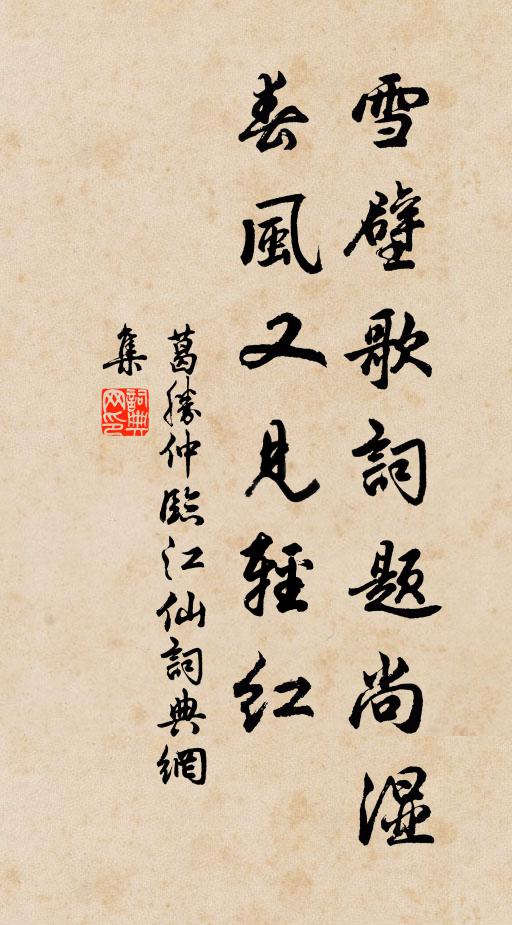 雪壁歌詞题尚湿
春風又見輕红
葛勝仲臨江仙詞典網
集
詞典
网印